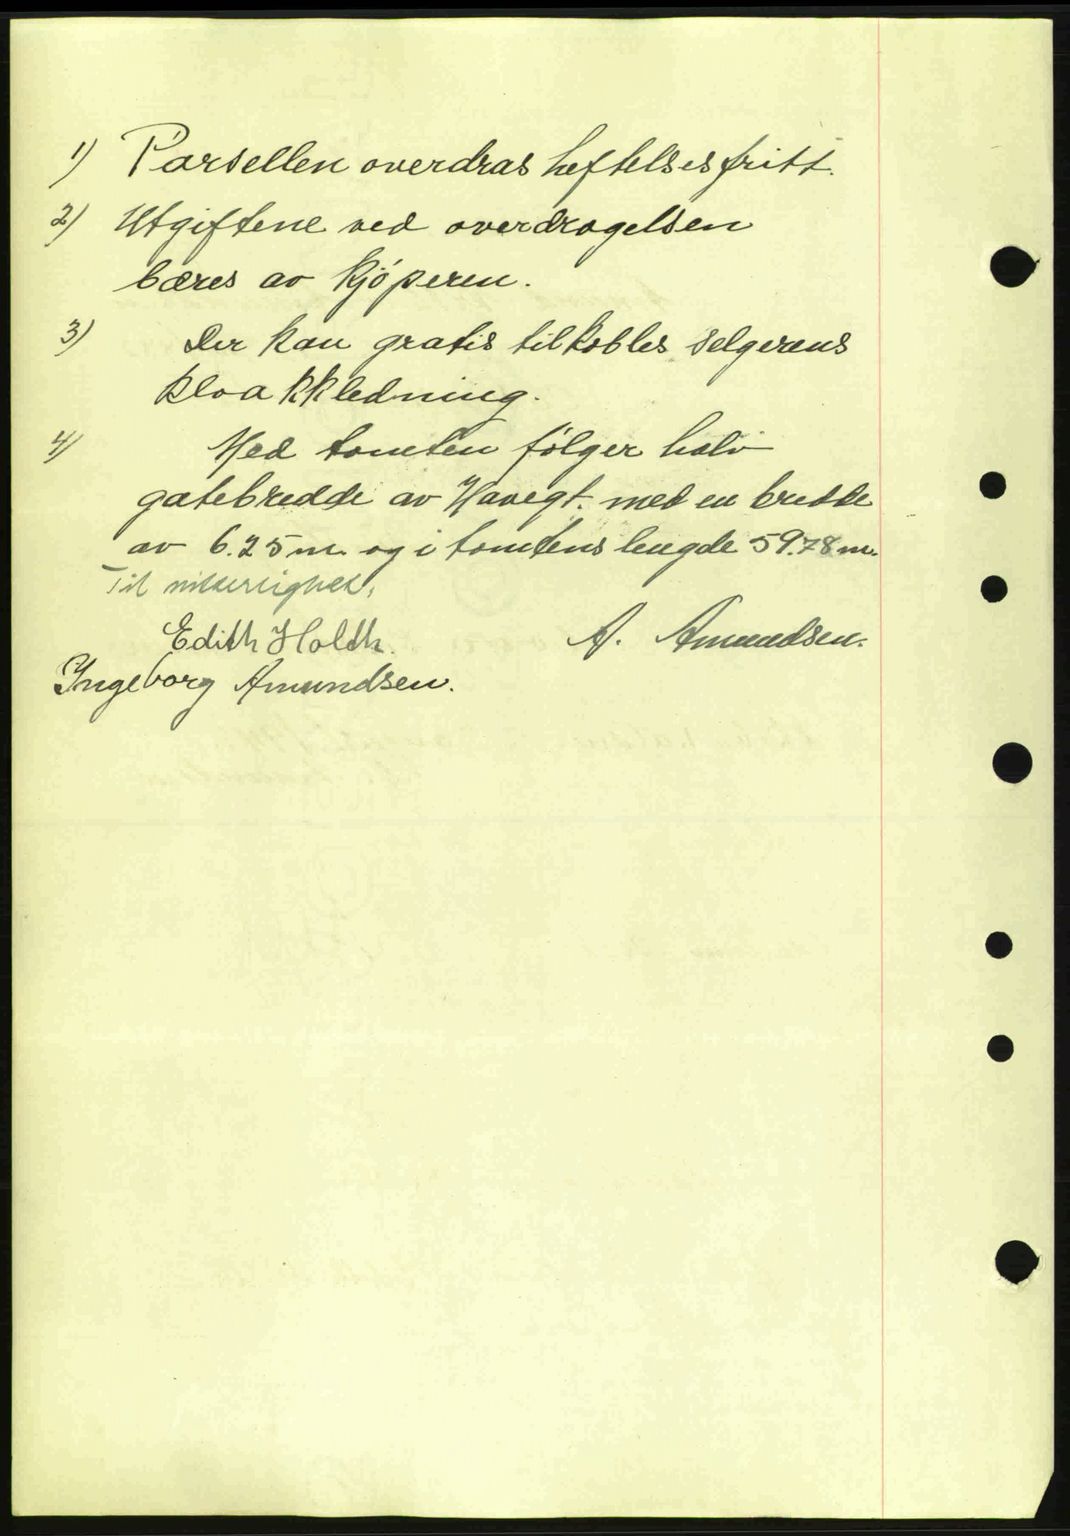 1) Parsellen overdras heftelsesfritt.
2) Utgiftene ved overdragelsen
bæres av kjøperen.
3) Der kan gratis tilkobles selgerens
kloakkledning.
4) Med tomten følger halv
gatebredde av Havegt. med en bredde
av 6.25 m og i tomtens lengde 59.78 m.
Til vitterlighet,
Edith Holth. A. Amundsen.
Ingeborg Amundsen.